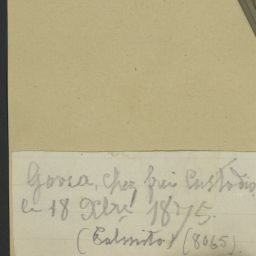 Goyea, chez frei Custodio,
le 18 Xbre 1875.
(Palmito) (8065).